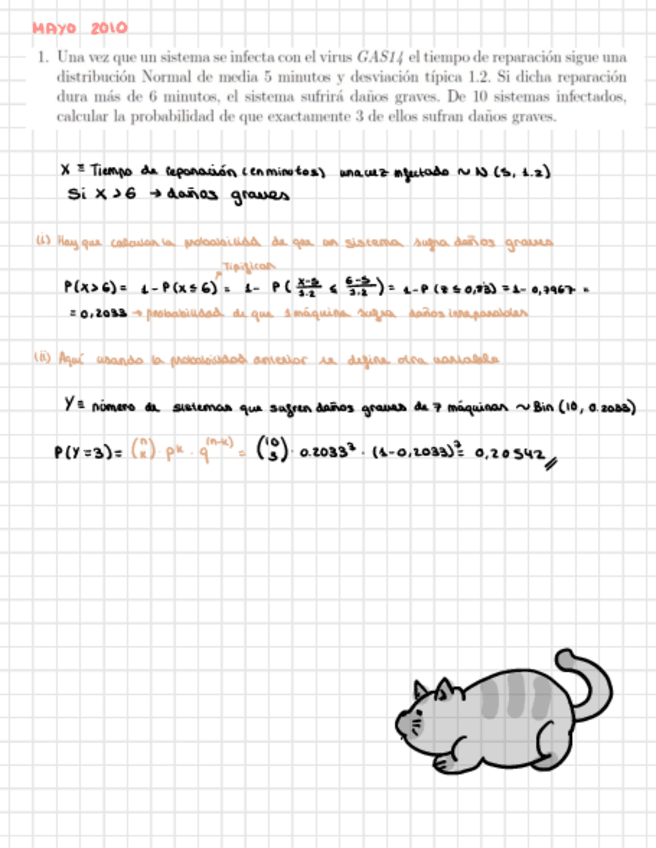 MAYO 2010
1. Una vez que un sistema se infecta con el virus GAS14 el tiempo de reparación sigue una
distribución Normal de media 5 minutos y desviación típica 1.2. Si dicha reparación
dura más de 6 minutos, el sistema sufrirá daños graves. De 10 sistemas infectados,
calcular la probabilidad de que exactamente 3 de ellos sufran daños graves.
X ≡ Tiempo de reparación (en minutos) una vez infectado ~ N (5, 1.2)
Si X > 6 → daños graves
(i) Hay que calcular la probabilidad de que un sistema sufra daños graves
Tipificar
P(X>6) = 1 - P(X≤6) = 1 - P( (X-5)/1.2 ≤ (6-5)/1.2 ) = 1 - P (Z ≤ 0,83) = 1 - 0,7967 =
= 0,2033 → probabilidad de que 1 máquina sufra daños irreparables
(ii) Aquí usando la probabilidad anterior se define otra variable
Y ≡ número de sistemas que sufren daños graves de 7 máquinas ~ Bin (10, 0.2033)
P(Y=3) = (n k) · p^k · q^(n-k) = (10 3) · 0.2033³ · (1-0,2033)⁷ = 0,20542